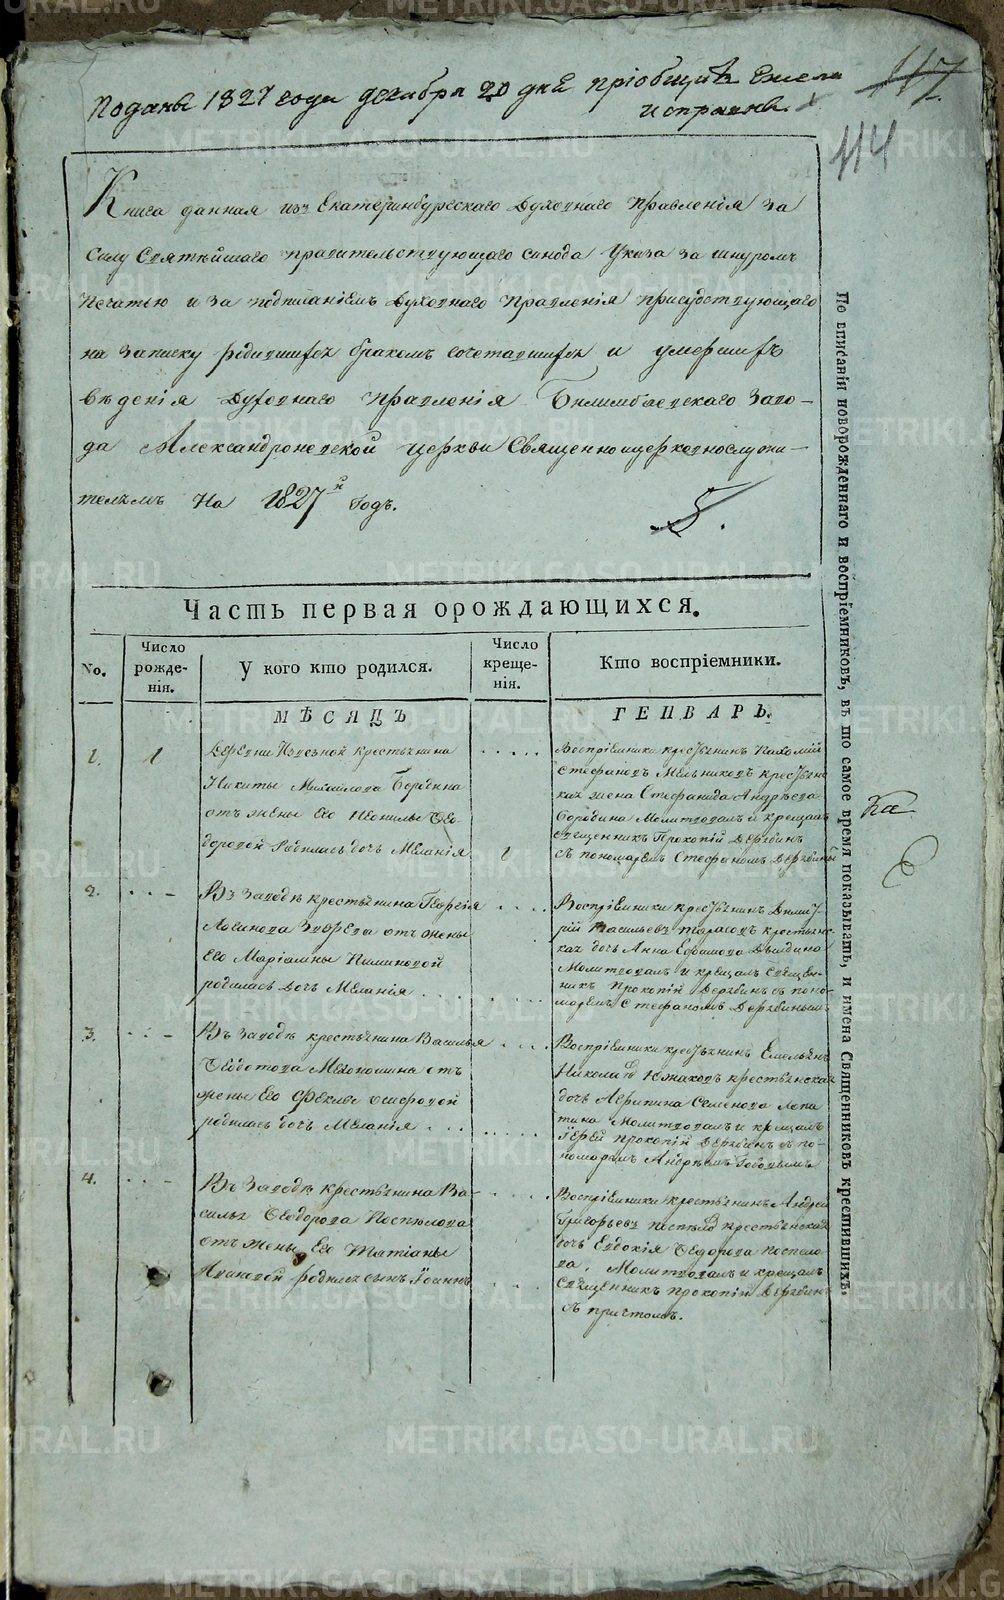 Поданы 1827 года декабря 20 дня пріобщить
исправны.
117
114
Книга данная изъ Екатеринбургскаго Духовнаго Правленія за
силу Святѣйшаго правительствующаго синода Указа за шнуромъ
печатью и за подписаніемъ Духовнаго Правленія присудствующаго
на записку родившихся бракомъ сочетавшихся и умершихъ
вѣденія Духовнаго Правленія Билимбаевскаго Заво-
да Александроневской церкви Священноцерковнослужи-
телямъ На 1827й Годъ.
5.
Часть первая орождающихся.
No.
Число рожде-нія.
У кого кто родился.
Число креще-нія.
Кто воспріемники.
МѢСЯЦЪ
ГЕНВАРЬ.
1.
1
Деревни крестьянина
Никиты Михайлова Бородина
отъ жены его Неонилы Ѳео
доровой родилась дочь Меланія
1
Воспріемники крестьянинъ Пахомій
Стефановъ Мельниковъ крестьянс
кая жена Стефанида Андреева
Бородина Молитвовалъ и крещалъ
священникъ Прокопій Дерябинъ
съ пономаремъ Стефаномъ Дерябинымъ
2.
Въ Заводѣ крестьянина Георгія
Логинова отъ жены
его Маріамны Пименовой
родилась дочь Меланія
Воспріемники крестьянинъ Димит-
рій Васильевъ Тарасовъ крестьянс-
кая дочь Анна Ефимова
Молитвовалъ и крещалъ священ-
никъ Прокопій Дерябинъ съ поно-
маремъ Стефаномъ Дерябинымъ
3.
Въ Заводѣ крестьянина Василья
Ѳедотова Мехоношина отъ
жены его Феклы Осиповой
родилась дочь Меланія
Воспріемники крестьянинъ Емельянъ
Николаевъ Южаковъ крестьянская
дочь Агрипина Семенова Лопа
тина Молитвовалъ и крещалъ
Іерей Прокопій Дерябинъ съ по-
номаремъ Андреемъ
4.
Въ Заводѣ крестьянина Ва-
силья Ѳеодорова Поспелова
отъ жены его Татіаны
родился сынъ Іоаннъ
Воспріемники крестьянинъ Андрей
Григорьевъ Поспеловъ крестьянская
дочь Евдокія Ѳедорова Поспело
ва. Молитвовалъ и крещалъ
священникъ Прокопій Дерябинъ
съ причтомъ.
По вписаніи новорожденнаго и воспріемниковъ, въ шо самое время показывать, и имена Священниковъ крестившихъ.